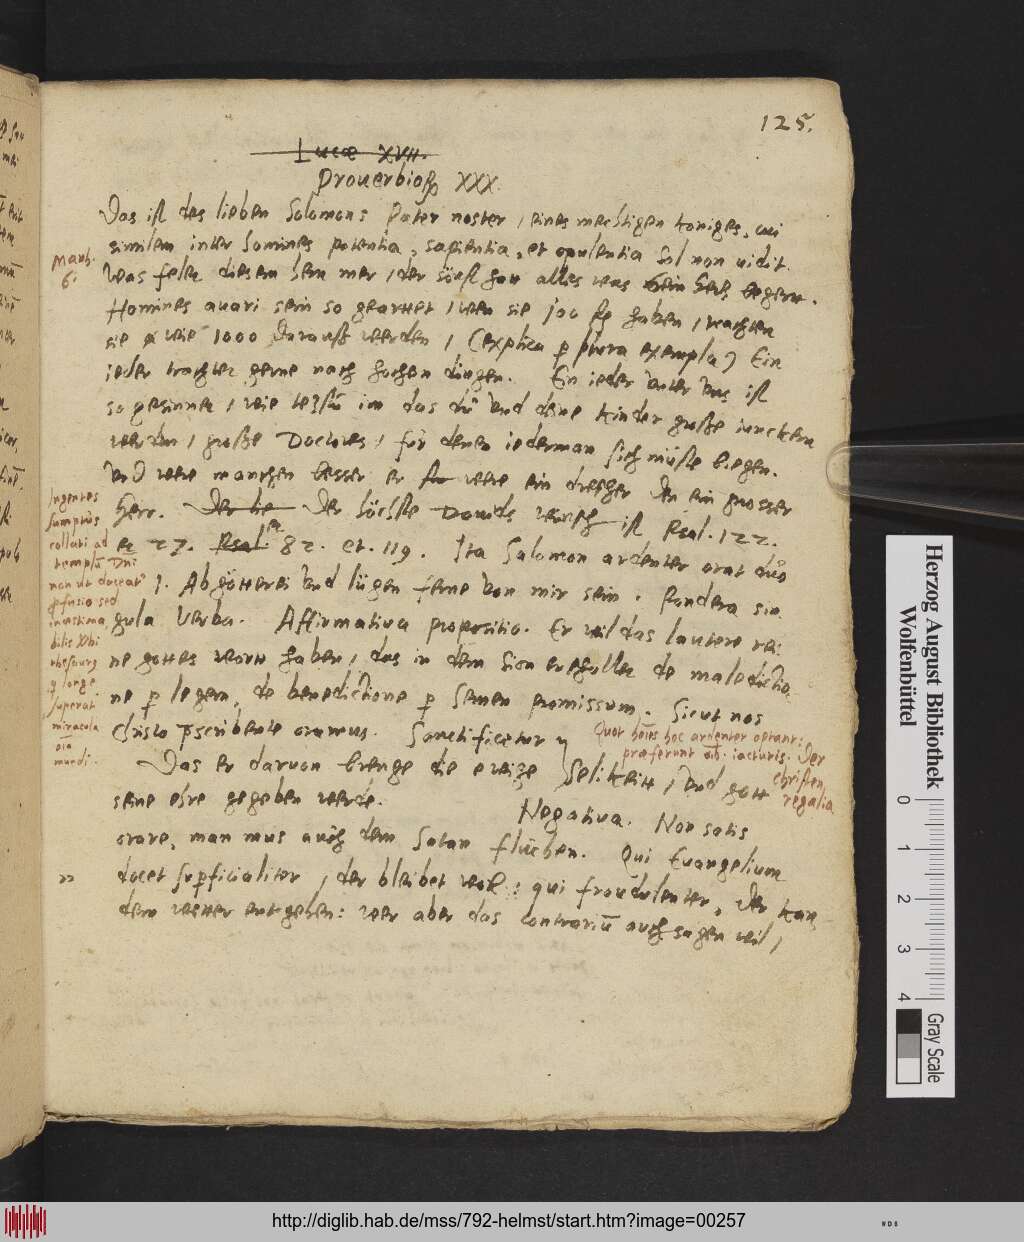 125.
Lucæ XVII.
Prouerbioru XXX.
Das ist des lieben Solomons Pater noster, eines mechtigen koniges, cui
similem inter homines potentia, sapientia, et opulentia sol non uidit.
Matth. 6.
Was feleu diesem hern mer, der sonst hatt alles was sein hertz begertt.
Homines auari sein so geartiet, wen sie 100 fl haben, trachten
sie wie 1000 daraus werden, (explica p plura exempla) Ein
ieder trachtet gerne nach hochen dingen. Ein ieder unter uns ist
so gesinnet, wie das du und deine kinder große iunckern
werden, große Doctores, for denen iederman sich müste biegen.
und were manchen besser er were ein drescher den ein grosser
herr. Der he Der höchste Dauids wunsch ist Psal. 122.
et 27. Psal et 82. et. 119. Ita Salomon ardenter orat duo
1. Abgötterei und lügen ferne von mir sein. Pondera sin
gula verba. Affirmatiua propositio. Er wil das lautere rei:
ne gottes wortt haben, das in dem Sion de maledictio
ne p legem, de benedictione p semen promissum. Sicut nos
Christo pscribente oramus. Sanctificetur
Das er daruon brenge die ewige selikeitt, und gott
seine ehre gegeben werde. Negatiua. Non satis
orare, man mus auch dem Satan fluchen. Qui Euangelium
docet supficialiter, der bleibet wol: qui fraudulenter, der kan
dem wetter entgehen: wer aber das contrariu auch sagen wil,
Ingentes
sumptus
collati ad
templu Dni
non ut doceat
pfusio sed
inæstima
bilis
thesaurg
q longe
superat
miracula
oia
mundi.
Quot hoies hoc ardenter optant:
præferunt oib. iacturis. Der
christen
regalia
Herzog August Bibliothek
Wolfenbüttel
0 1 2 3 4
Gray Scale
http://diglib.hab.de/mss/792-helmst/start.htm?image=00257